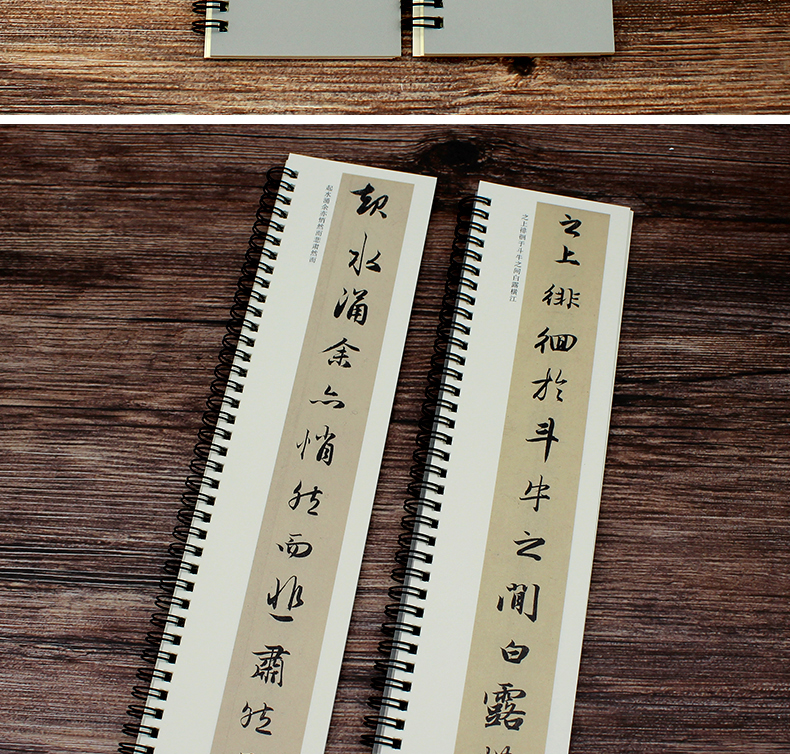 起水涌余亦悄然而悲肃然而
起水涌余亦悄然而悲肅然
之上徘徊于斗牛之间白露横江
之上徘徊於斗牛之間白露